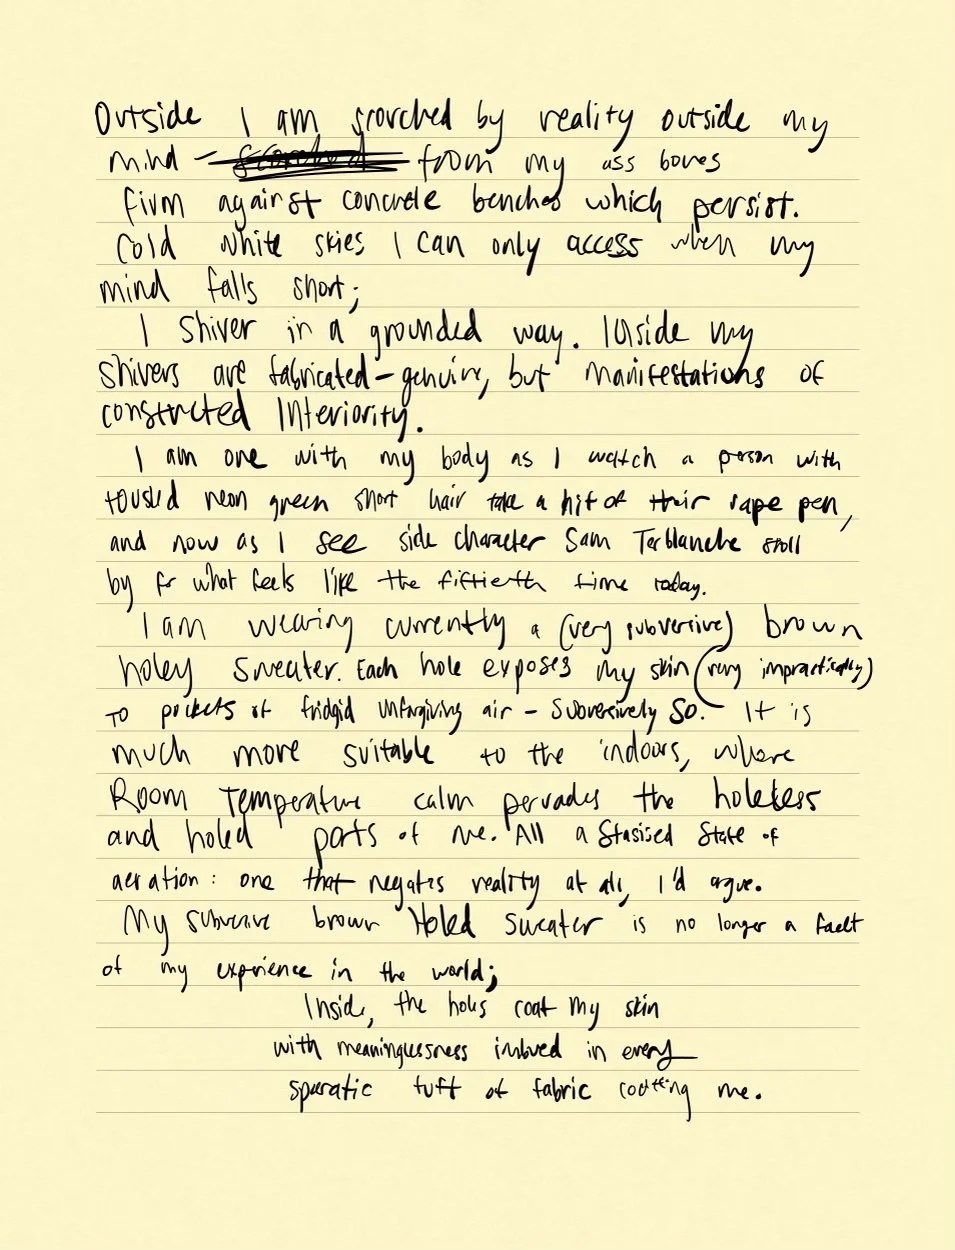 Outside I am scorched by reality outside my
mind - from my ass bones
firm against concrete benches which persist.
Cold white skies I can only access when my
mind falls short;
I shiver in a grounded way. Inside my
shivers are fabricated-genuine, but manifestations of
constructed Interiority.
I am one with my body as I watch a person with
tousled neon green short hair take a hit of their vape pen,
and now as I see side character Sam Terblanche stroll
by for what feels like the fiftieth time today.
I am wearing currently a (very subversive) brown
holey sweater. Each hole exposes my skin (very impractically)
to pockets of fridgid unforgiving air - subversively so. It is
much more suitable to the indoors, where
Room Temperature calm pervades the holeless
and holed parts of me. All a stasised state of
aeration: one that negates reality at all, I'd argue.
My subversive brown Holed sweater is no longer a facet
of my experience in the world;
Inside, the holes coat my skin
with meaninglessness imbued in every
sporatic tuft of fabric coatting me.